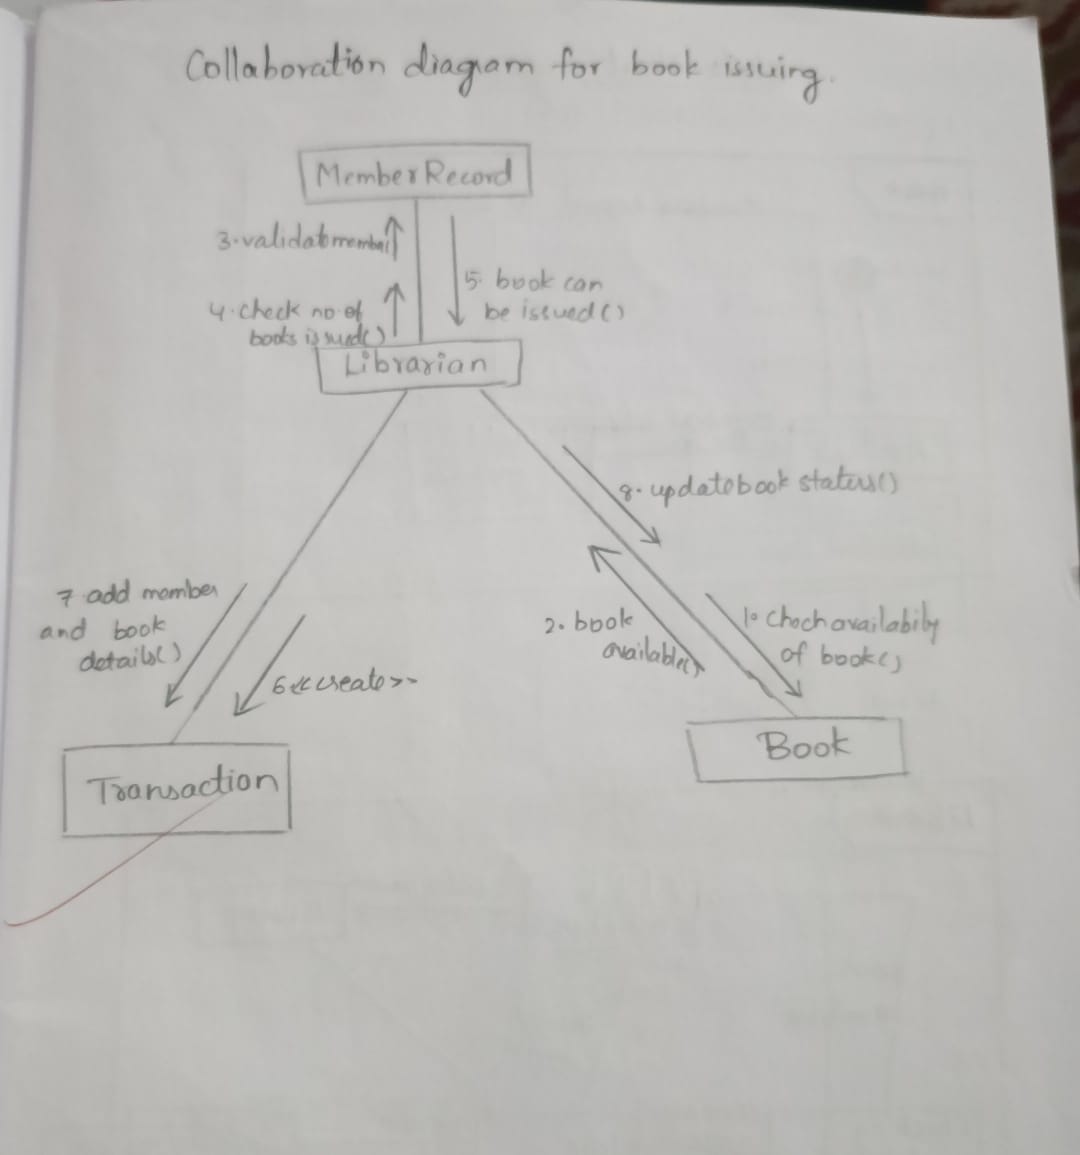 Collaboration diagram for book issuing.
MemberRecord
3. validatemember()
5. book can
be issued()
4. check no. of
books issued()
Librarian
8. updatebook status()
7. add member
and book
details()
2. book
available()
1. Checkavailability
of book()
6<<create>>
Transaction
Book